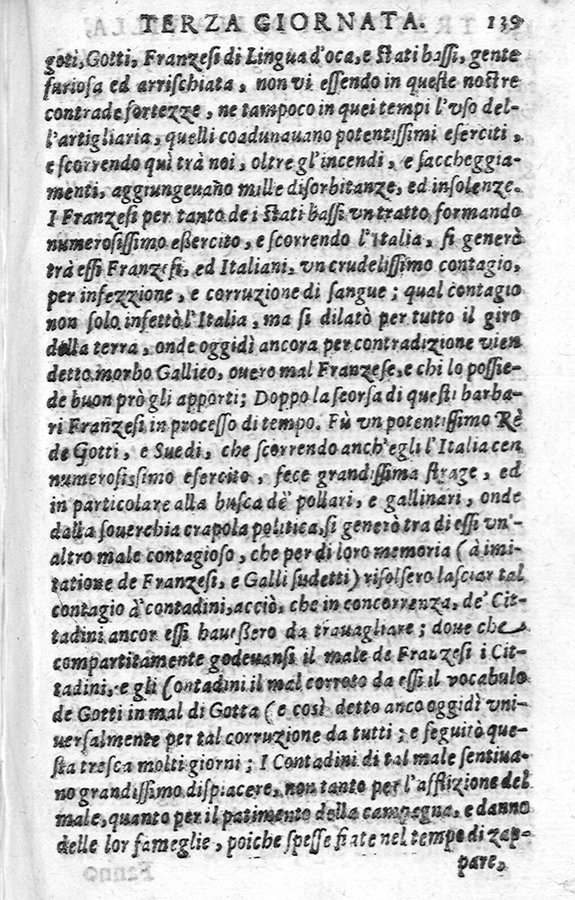 TERZA GIORNATA. 139
goti, Gotti, Franzesi di Lingua d'oca, e stati bassi, gente
furiosa ed arrischiata, non vi essendo in queste nostre
contrade fortezze, ne tampoco in quei tempi l'vso del-
l'artigliaria, quelli coadunauano potentissimi eserciti,
e scorrendo quì trà noi, oltre gl'incendi, e saccheggia-
menti, aggiungeuano mille disorbitanze, ed insolenze.
I Franzesi per tanto de i stati bassi vn tratto, formando
numerosissimo eßercito, e scorrendo l'Italia, si generò
trà essi Franzesi, ed Italiani, vn crudelissimo contagio,
per infezzione, e corruzione di sangue; qual contagio
non solo infettò l'Italia, ma si dilatò per tutto il giro
della terra, onde oggidì ancora per contradizione vien
detto morbo Gallico, ouero mal Franzese, e chi lo possie-
de buon prò gli apporti; Doppo la scorsa di questi barba-
ri Franzesi in processo di tempo. Fù vn potentissimo Rè
de Gotti, e Suedi, che scorrendo anch'egli l'Italia con
numerosissimo esercito, fece grandissima strage, ed
in particolare alla busca de' pollari, e gallinari, onde
dalla souerchia crapola politica, si generò tra di essi vn'-
altro male contagioso, che per di loro memoria (à imi-
tatione de Franzesi, e Galli sudetti) risolsero lasciar tal
contagio à contadini, acciò, che in concorrenza, de' Cit-
tadini ancor essi haueßero da trauagliare; doue che
compartitamente godeuansi il male de Franzesi i Cit-
tadini, e gli Contadini il mal corroto da essi il vocabulo
de Gotti in mal di Gotta (e così detto anco oggidì vni-
uersalmente per tal corruzione da tutti; e seguitò que-
sta tresca molti giorni; I Contadini di tal male sentiua-
no grandissimo dispiacere, non tanto per l'afflizione del
male, quanto per il patimento della campagna, e danno
delle lor fameglie, poiche spesse fiate nel tempo di zap-
pare,